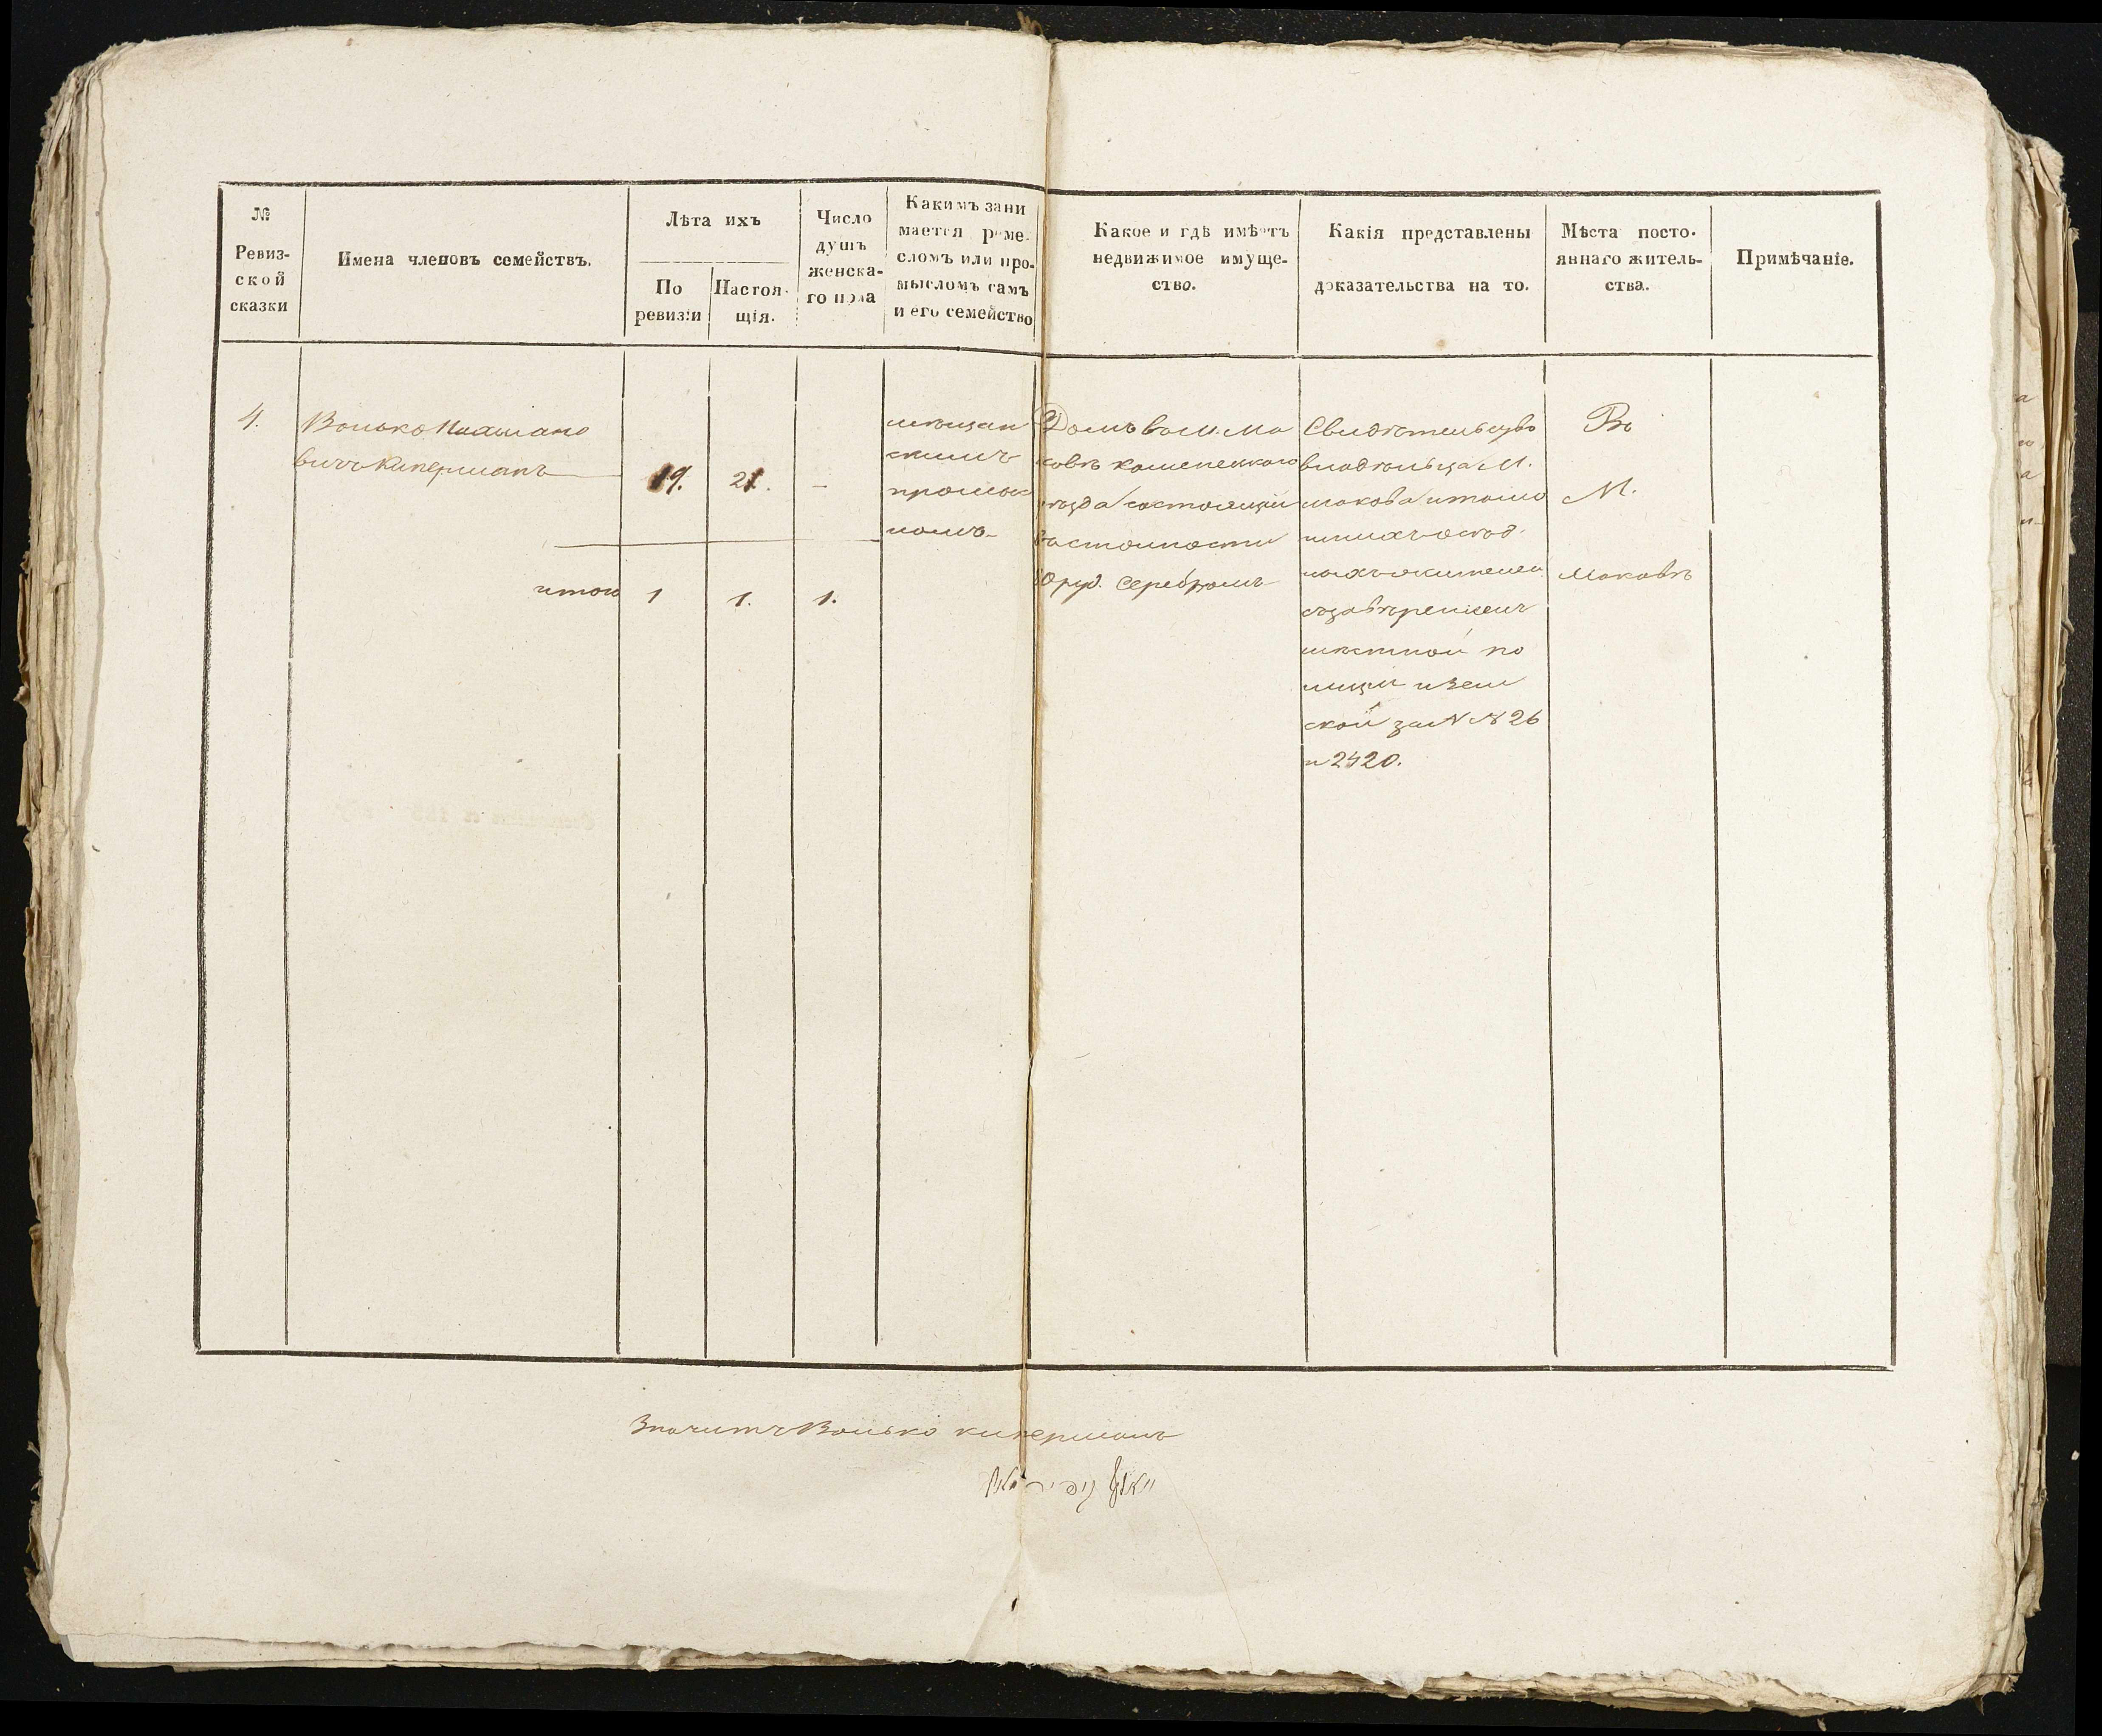 №
Ревиз-
ской
сказки
Имена членовъ семействъ.
Лѣта ихъ
По
ревизіи
Настоя-
щія.
Число
душъ
женска-
го пола
Какимъ зани
мается реме-
сломъ или про-
мысломъ самъ
и его семейство
Какое и гдѣ имѣетъ
недвижимое имуще-
ство.
Какія представлены
доказательства на то.
Мѣста посто-
яннаго житель-
ства.
Примѣчаніе.
4.
Волько Нахмано
вичъ Киперманъ
19.
21.
-
мѣщан
скимъ
промыс
ломъ
Домъ въ м. Ма
ковѣ каменецкаго
уѣзда состоящій
въ стоимости
руб. серебромъ
Свидѣтельство
владѣльца М.
Макова и
жителей
мѣстной по
лиціи и Зем
ской за №№ 26
и 2420.
Въ
М.
Маковѣ
итого
1
1.
1.
Значитъ Волько Киперманъ